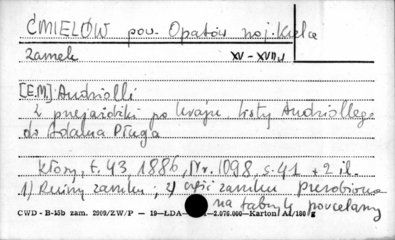 ĆMIELÓW pow. Opatów woj. Kielce
zamek XV - XVII w
[E.M.] Andriolli
Z przejażdżki po kraju. Listy Andriollego
do Adama Pługa
Kłosy, t. 43, 1886, Nr. 1098, s. 41 + 2 il.
1) Ruiny zamku, 2) część zamku przerobiona
na fabrykę porcelany
CWD - B-15b zam. 2909/ZW/P - 19-LDA- -2.076.000-Karton A1/180 g